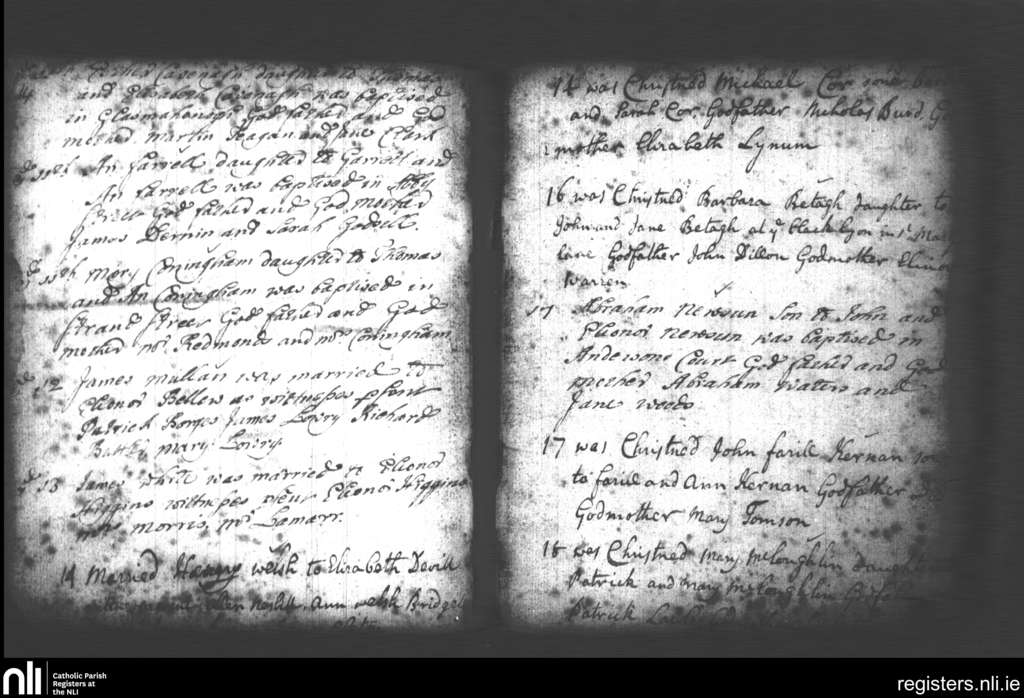 Cavenagh daughter to Thomas
and Elizabeth Cavenagh was baptised
in God father and God
mother Martin Reagan and Jane Clark
An Farrell daughter to Garrett and
An Farrell was baptised in Abby
Street God father and God mother
James Dernin and Sarah
Mary Coningham daughter to Thomas
and An Coningham was baptised in
Strand Street God father and God
mother Mr. Redmonds and Mrs. Coningham
12 James Mullan was married to
Elionor Bellew as witnesses psent
Patrick James Lowry Richard
Mary Lowry
13 James White was married to Elionor
Higgins witnesses were Elionor Higgins
Morris, Lamarr.
14 Married Henry Welsh to Elizabeth Devill
Nesbitt Ann Welsh Bridget
14 was Christned Michael Cor
and Sarah Cor Godfather Nicholas Burd
mother Elizabeth Lynum
16 was Christned Barbara Betagh daughter to
John and Jane Betagh at ye black lyon in St Mary
lane Godfather John Dillon Godmother Elinor
Warren
17 Abraham Newsun Son to John and
Elionor Newsun was baptised in
Andersons Court God father and God
mother Abraham Waters and
Jane Woods
17 was Christned John farill Kernan
to farill and Ann Kernan Godfather
Godmother Mary Tomson
18 was Christned Mary McLoughlin daughter
Patrick and Mary McLoughlin Godfather
Patrick
nli Catholic Parish
Registers at
the NLI
registers.nli.ie